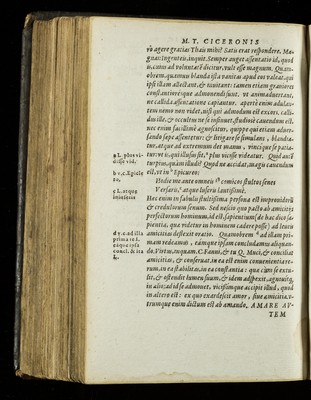 M. T. CICERONIS
rò agere gratias Thais mihi? Satis erat respondere, Ma-
gnas: ingenteis, inquit. Semper auget assentatio id, quod
is, cuius ad voluntatē dicitur, vult esse magnum. Quam-
obrem, quamuis blanda ista vanitas apud eos valeat, qui
ipsi illam allectant, & inuitant: tamen etiam grauiores
constantioresque admonendi sunt, vt animaduertant,
ne callida assentatione capiantur. aperte enim adulan-
tem nemo non videt, nisi qui admodum est excors. calli-
dus ille, & occultus ne se insinuet, studiosè cauendum est.
nec enim facillimè agnoscitur, quippe qui etiam aduer-
sando sæpe assentetur: & litigare se simulans, blandia-
tur, atque ad extremum det manus, vincique se patia-
tur: vt is, qui illusus sit, plus vicisse videatur. Quid autē
turpius, quàm illudi? Quod ne accidat, magis cauendum
est, vt in Epicureo:
Hodie me ante omneis comicos stultos senes
Versaris, atque luseris lautissimè.
Hæc enim in fabulis stultissima persona est improuidorū
& credulorum senum. Sed nescio quo pacto ab amicitijs
perfectorum hominum, id est, sapientium (de hac dico sa-
pientia, quæ videtur in hominem cadere posse) ad leueis
amicitias deflexit oratio. Quamobrem ad illam pri-
mam redeamus, eamque ipsam concludamus aliquan-
do. Virtus, inquam, C. Fanni, & tu Q. Muci, & conciliat
amicitias, & conseruat. in ea est enim conuenientia re-
rum, in ea stabilitas, in ea constantia: quæ cùm se extu-
lit, & ostendit lumen suum, & idem adspexit, agnouitque
in alio: ad id se admouet, vicissimque accipit illud, quod
in altero est: ex quo exardescit amor, siue amicitia. v-
trumque enim dictum est ab amando. AMARE AV-
TEM
a L. plus vi-
disse vid.
b v. c. Epicle
ro,
c L. atque
d v. c. ad illa
prima re d.
eaque ipsa